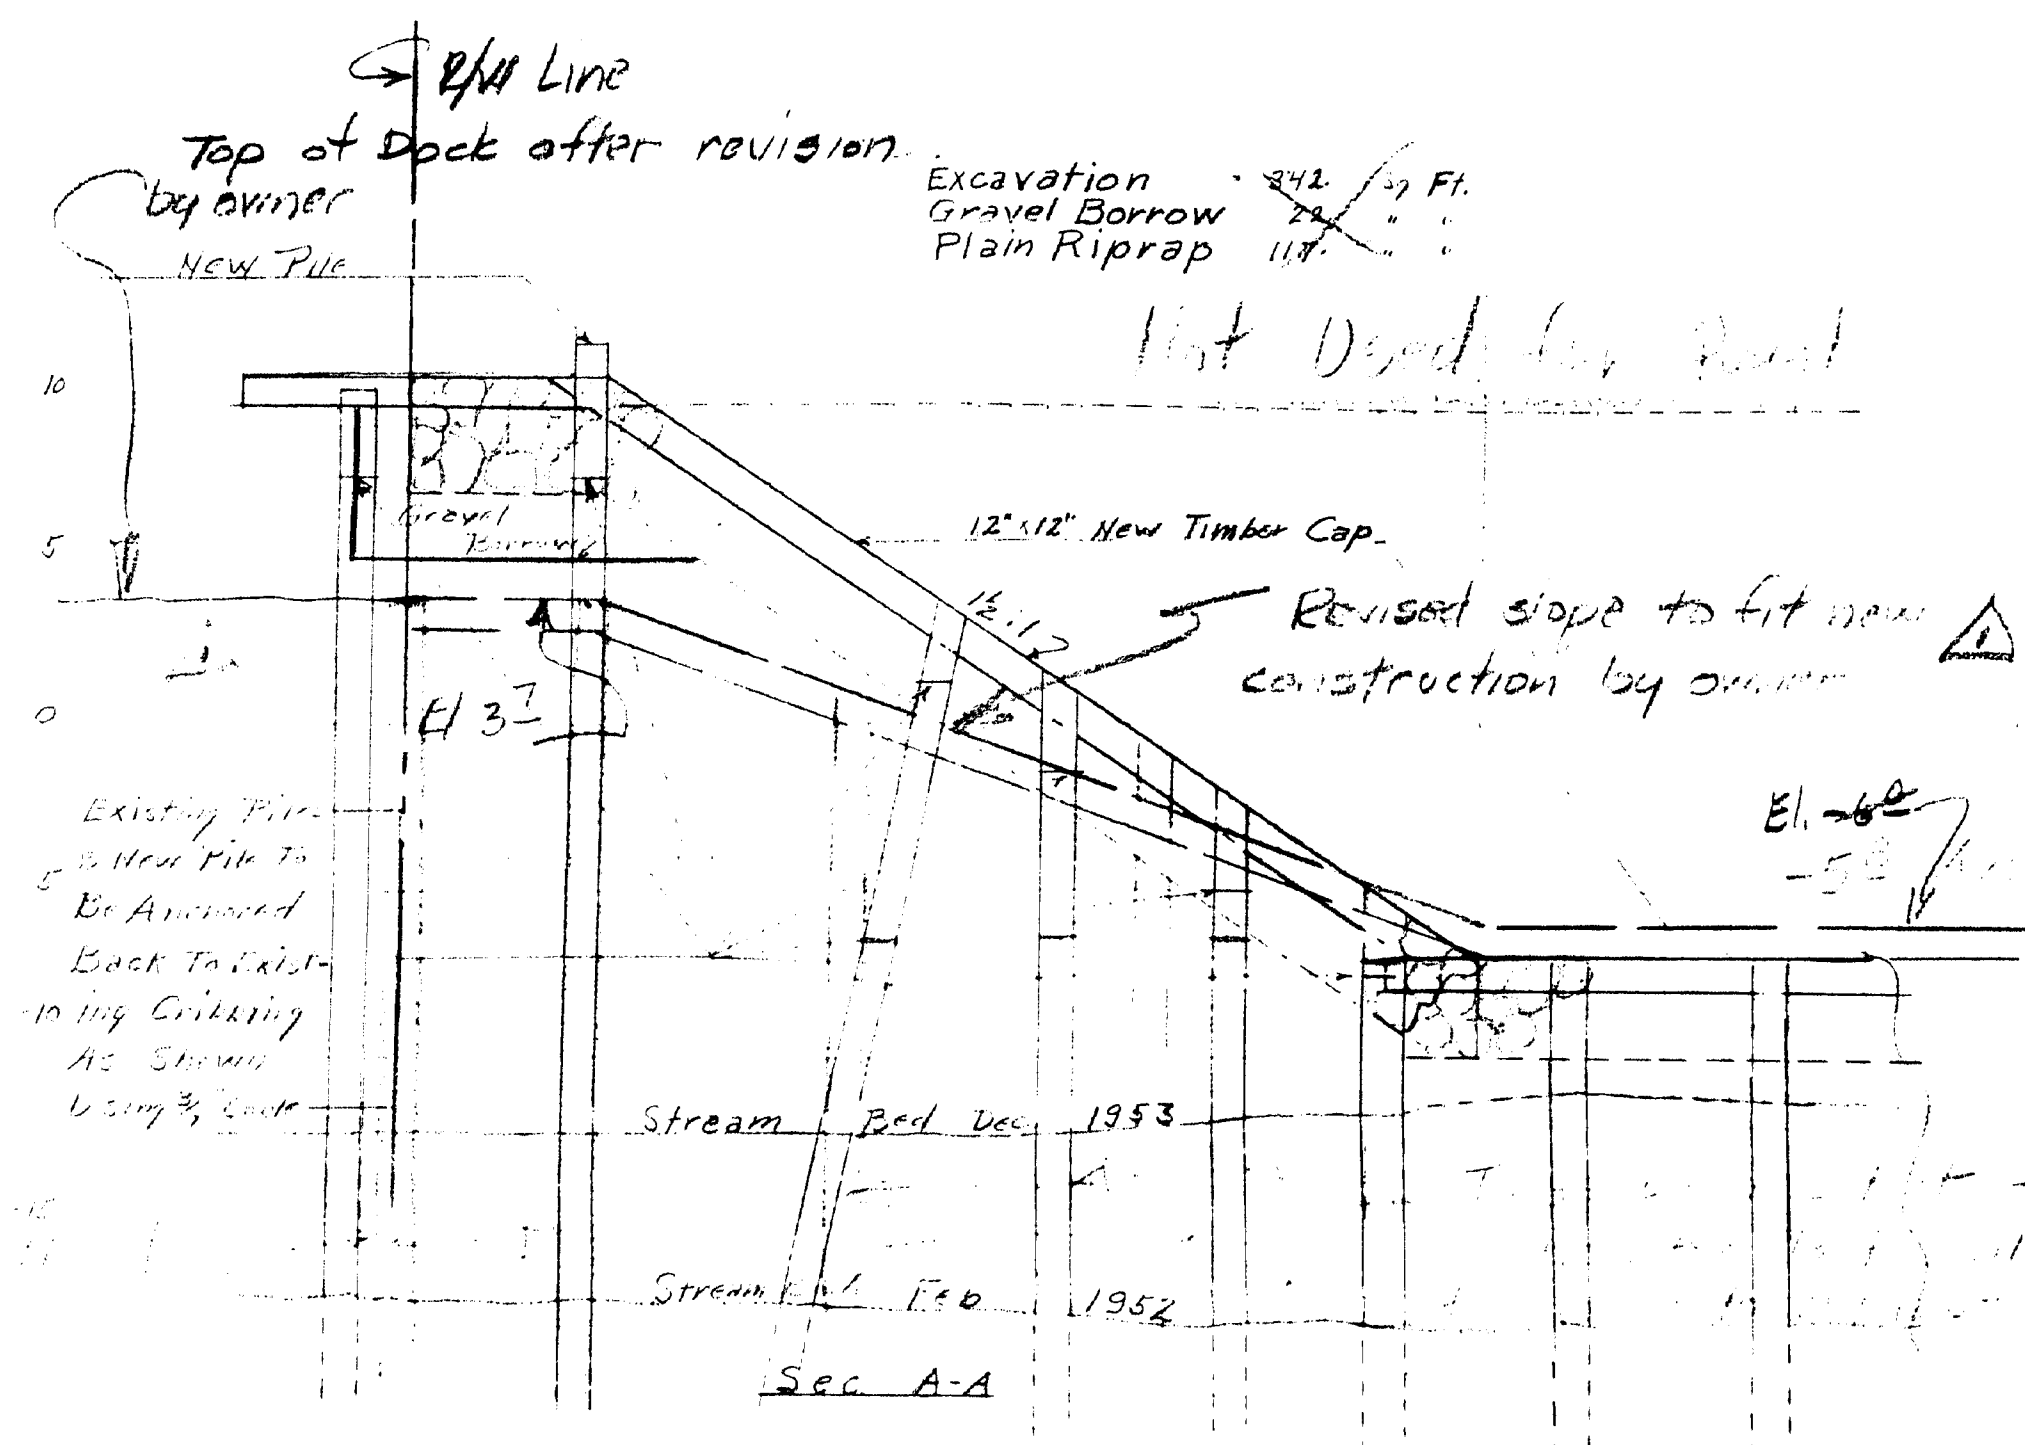 R/W Line
Top of Dock after revision
by owner
New Pile
Excavation 342. Sq Ft.
Gravel Borrow 22 " "
Plain Riprap 117. " "
Not Used for
10
Gravel
Borrow
5
12"x12" New Timber Cap
1½:1
Revised slope to fit new
construction by owner
1
0
El 3 7
Existing Pile
& New Pile To
Be Anchored
Back To Exist-
ing Cribbing
As Shown
Using ¾"
5
-10
-15
El. -6 0
-5 8
Stream Bed Dec 1953
Stream Bed Feb 1952
Sec A-A